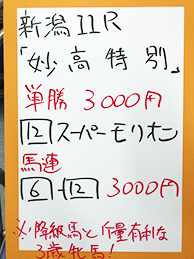 新潟11R
「妙高特別」
単勝 3000円
12 スーパーモリオン
馬連
6-12 3000円
※降級馬と斤量有利な
3歳牝馬!